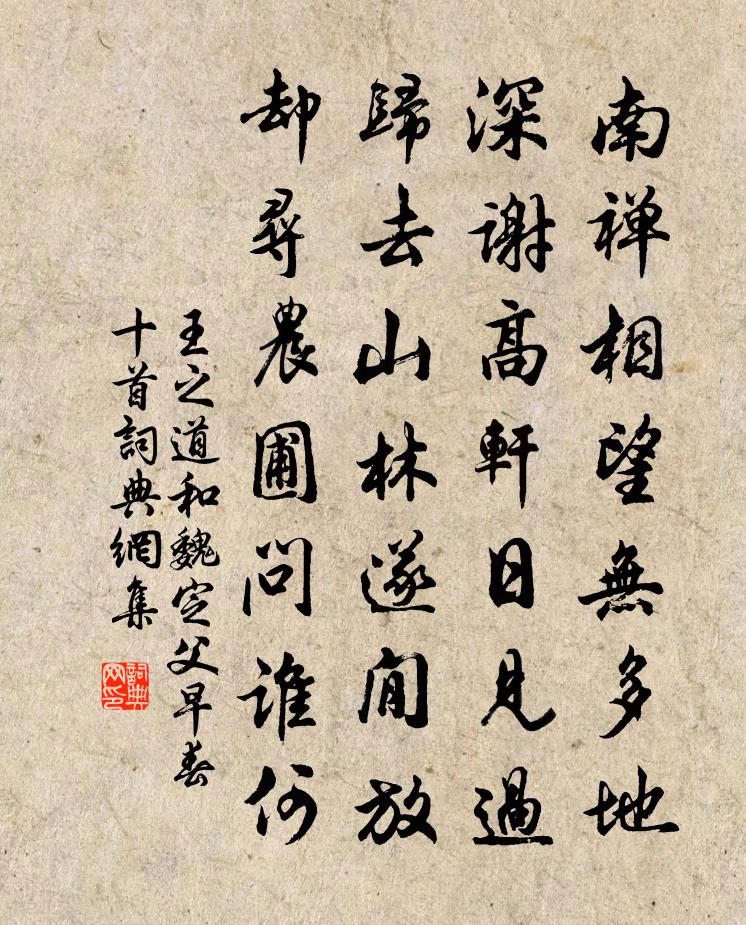 南禅相望無多地
深谢高軒日見過
歸去山林遂閒放
却尋農圃问谁何
王之道和魏定父早春
十首詞典網集
詞典
网印